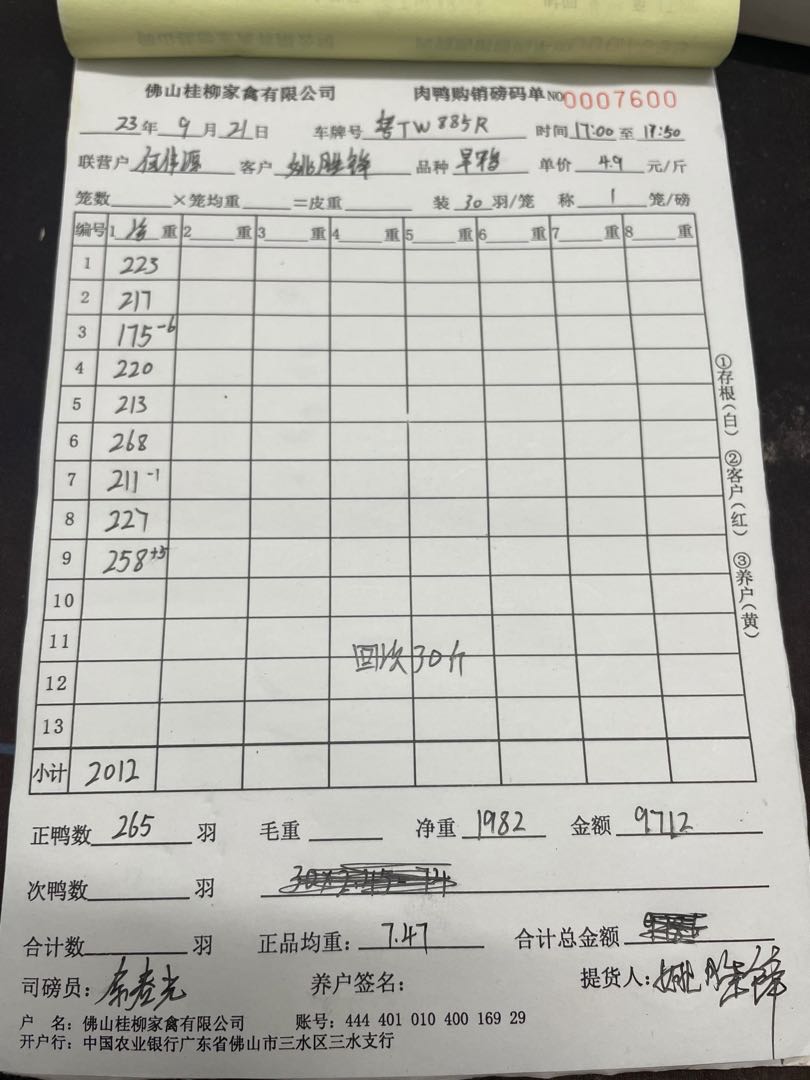 佛山桂柳家禽有限公司 肉鸭购销磅码单 NO 0007600
23年 9月 21日 车牌号 粤TW885R 时间 17:00 至 17:50
联营户 何伟源 客户 姚胜锋 品种 单价 4.9 元/斤
笼数 ×笼均重 =皮重 装 30 羽/笼 称 1 笼/磅
编号 1 重 2 重 3 重 4 重 5 重 6 重 7 重 8 重
1 223
2 217
3 175-6
4 220
5 213
6 268
7 211-1
8 227
9 258+5
10
11
回次30斤
12
13
小计 2012
正鸭数 265 羽 毛重 净重 1982 金额 9712
次鸭数 羽
合计数 羽 正品均重: 7.47 合计总金额
司磅员: 养户签名: 提货人: 姚胜锋
户 名: 佛山桂柳家禽有限公司 账号: 444 401 010 400 169 29
开户行: 中国农业银行广东省佛山市三水区三水支行
①存根(白) ②客户(红) ③养户(黄)